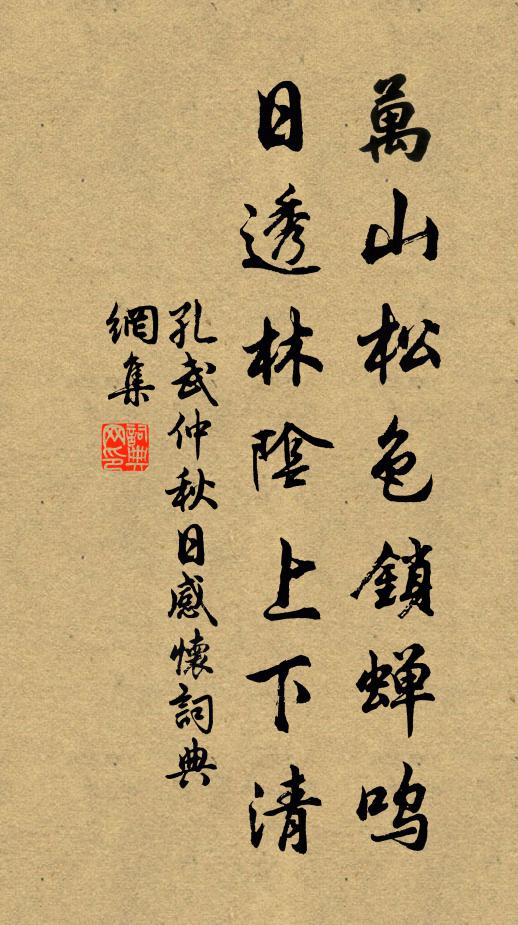 萬山松色鎖蝉鸣
日透林陰上下清
孔武仲秋日感懷詞典
網集
詞典
网印